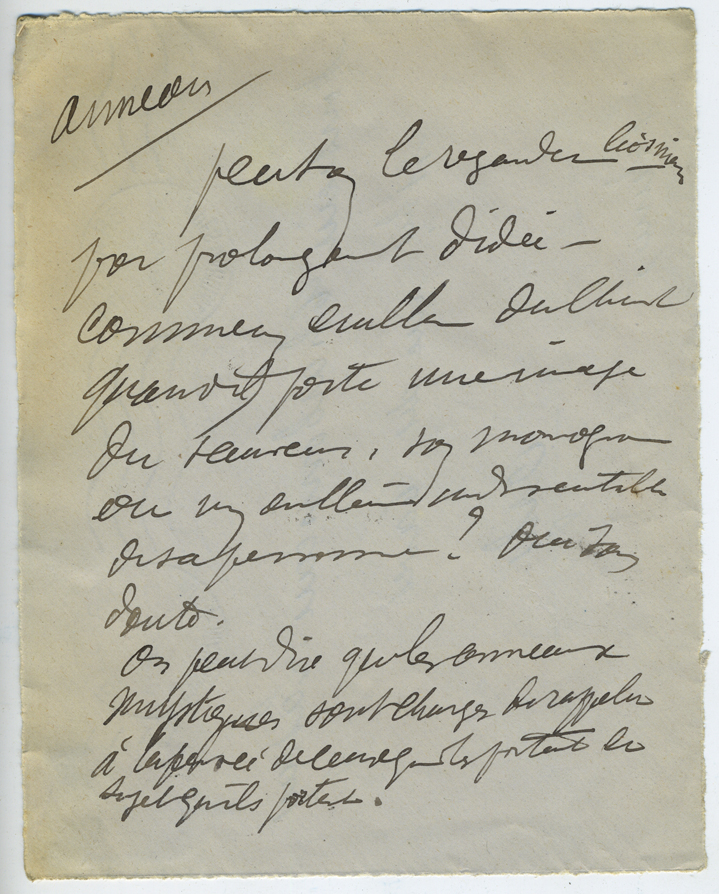 anneau
peut on le regarder
par prolongement d'idée –
comme un emblème du Christ
quand il porte une image
du sauveur, son monogramme
ou un emblème indiscutable
de sa personne? Oui sans
doute.
On peut dire que les anneaux
mystiques sont chargés de rappeler
à la pensée de ceux qui les portent le
sujet qu'ils portent.